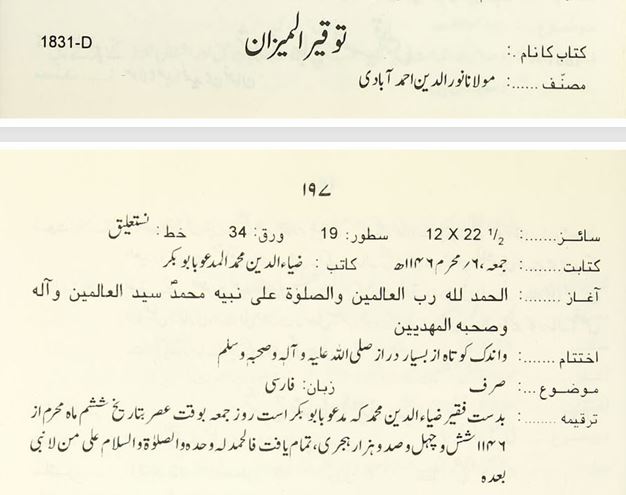 کتاب کا نام .: توقیر المیزان 1831-D
مصنّف ......: مولانا نور الدین احمد آبادی
۱۹۷
سائز.......: 12 X 22 1/2 سطور: 19 ورق: 34 خط: نستعلیق
کتابت........: جمعہ، ۶/ محرم ۱۱۴۶ھ کاتب : ضیاء الدین محمد المدعو بابو بکر
آغاز ........: الحمد لله رب العالمین والصلوٰة علی نبیه محمدؐ سید العالمین وآله
وصحبه المهدیین
اختتام .......: واندک کوتاه از بسیار دراز صلی اللہ علیہ و آلہ وصحبہ وسلم
موضوع ...: صرف زبان: فارسی
ترقیمہ .......: بدست فقیر ضیاء الدین محمد که مدعو بابو بکر است روز جمعه بوقت عصر بتاریخ ششم ماہ محرم از
۱۱۴۶ شش و چہل وصد و ہزار ہجری، تمام یافت فالحمد لہ وحدہ والصلوٰة والسلام علی من لا نبی
بعدہ